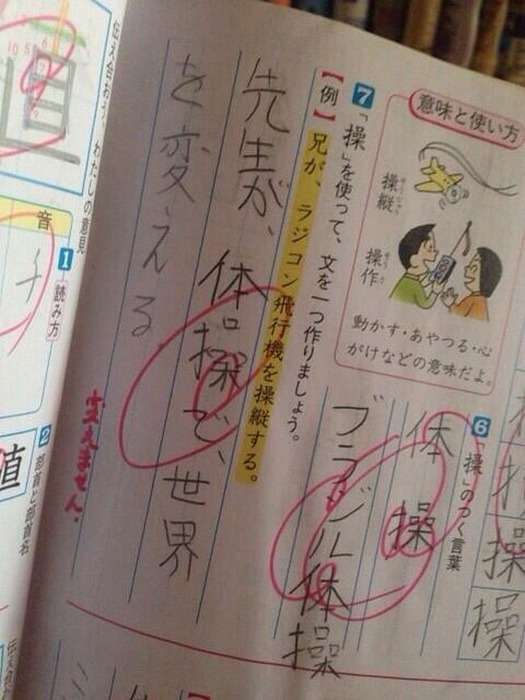 意味と使い方
操縦
そうじゅう
操作
そうさ
動かす・あやつる・心
がけなどの意味だよ。
6 「操」のつく言葉
体操
ブラジル体操
操
操
7 「操」を使って、文を一つ作りましょう。
【例】兄が、ラジコン飛行機を操縦する。
先生が、体操で、世界
を変える。
変えません。
わたしの意見
音
チ
1 読み方
2 部首と部首名
値
値